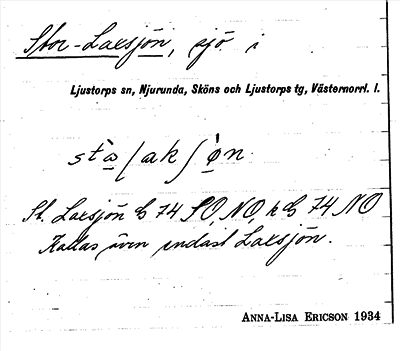 Stor-Laxsjön, sjö i
Ljustorps sn, Njurunda, Sköns och Ljustorps tg, Västernorrl. l.
St. Laxsjön G 74 SO, NO, k G 74 NO
Kallas även endast Laxsjön.
ANNA-LISA ERICSON 1934